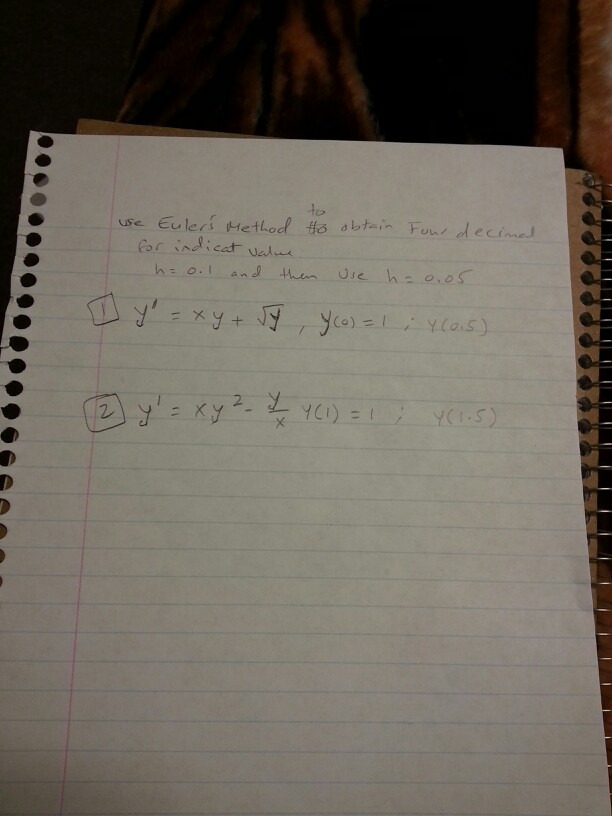 to
use Euler's Method obtain Four decimal
for indicat value
h = 0.1 and then Use h = 0.05
1 y' = xy + √y , y(0) = 1 ; Y(0.5)
2 y' = xy² - y/x Y(1) = 1 ; Y(1.5)